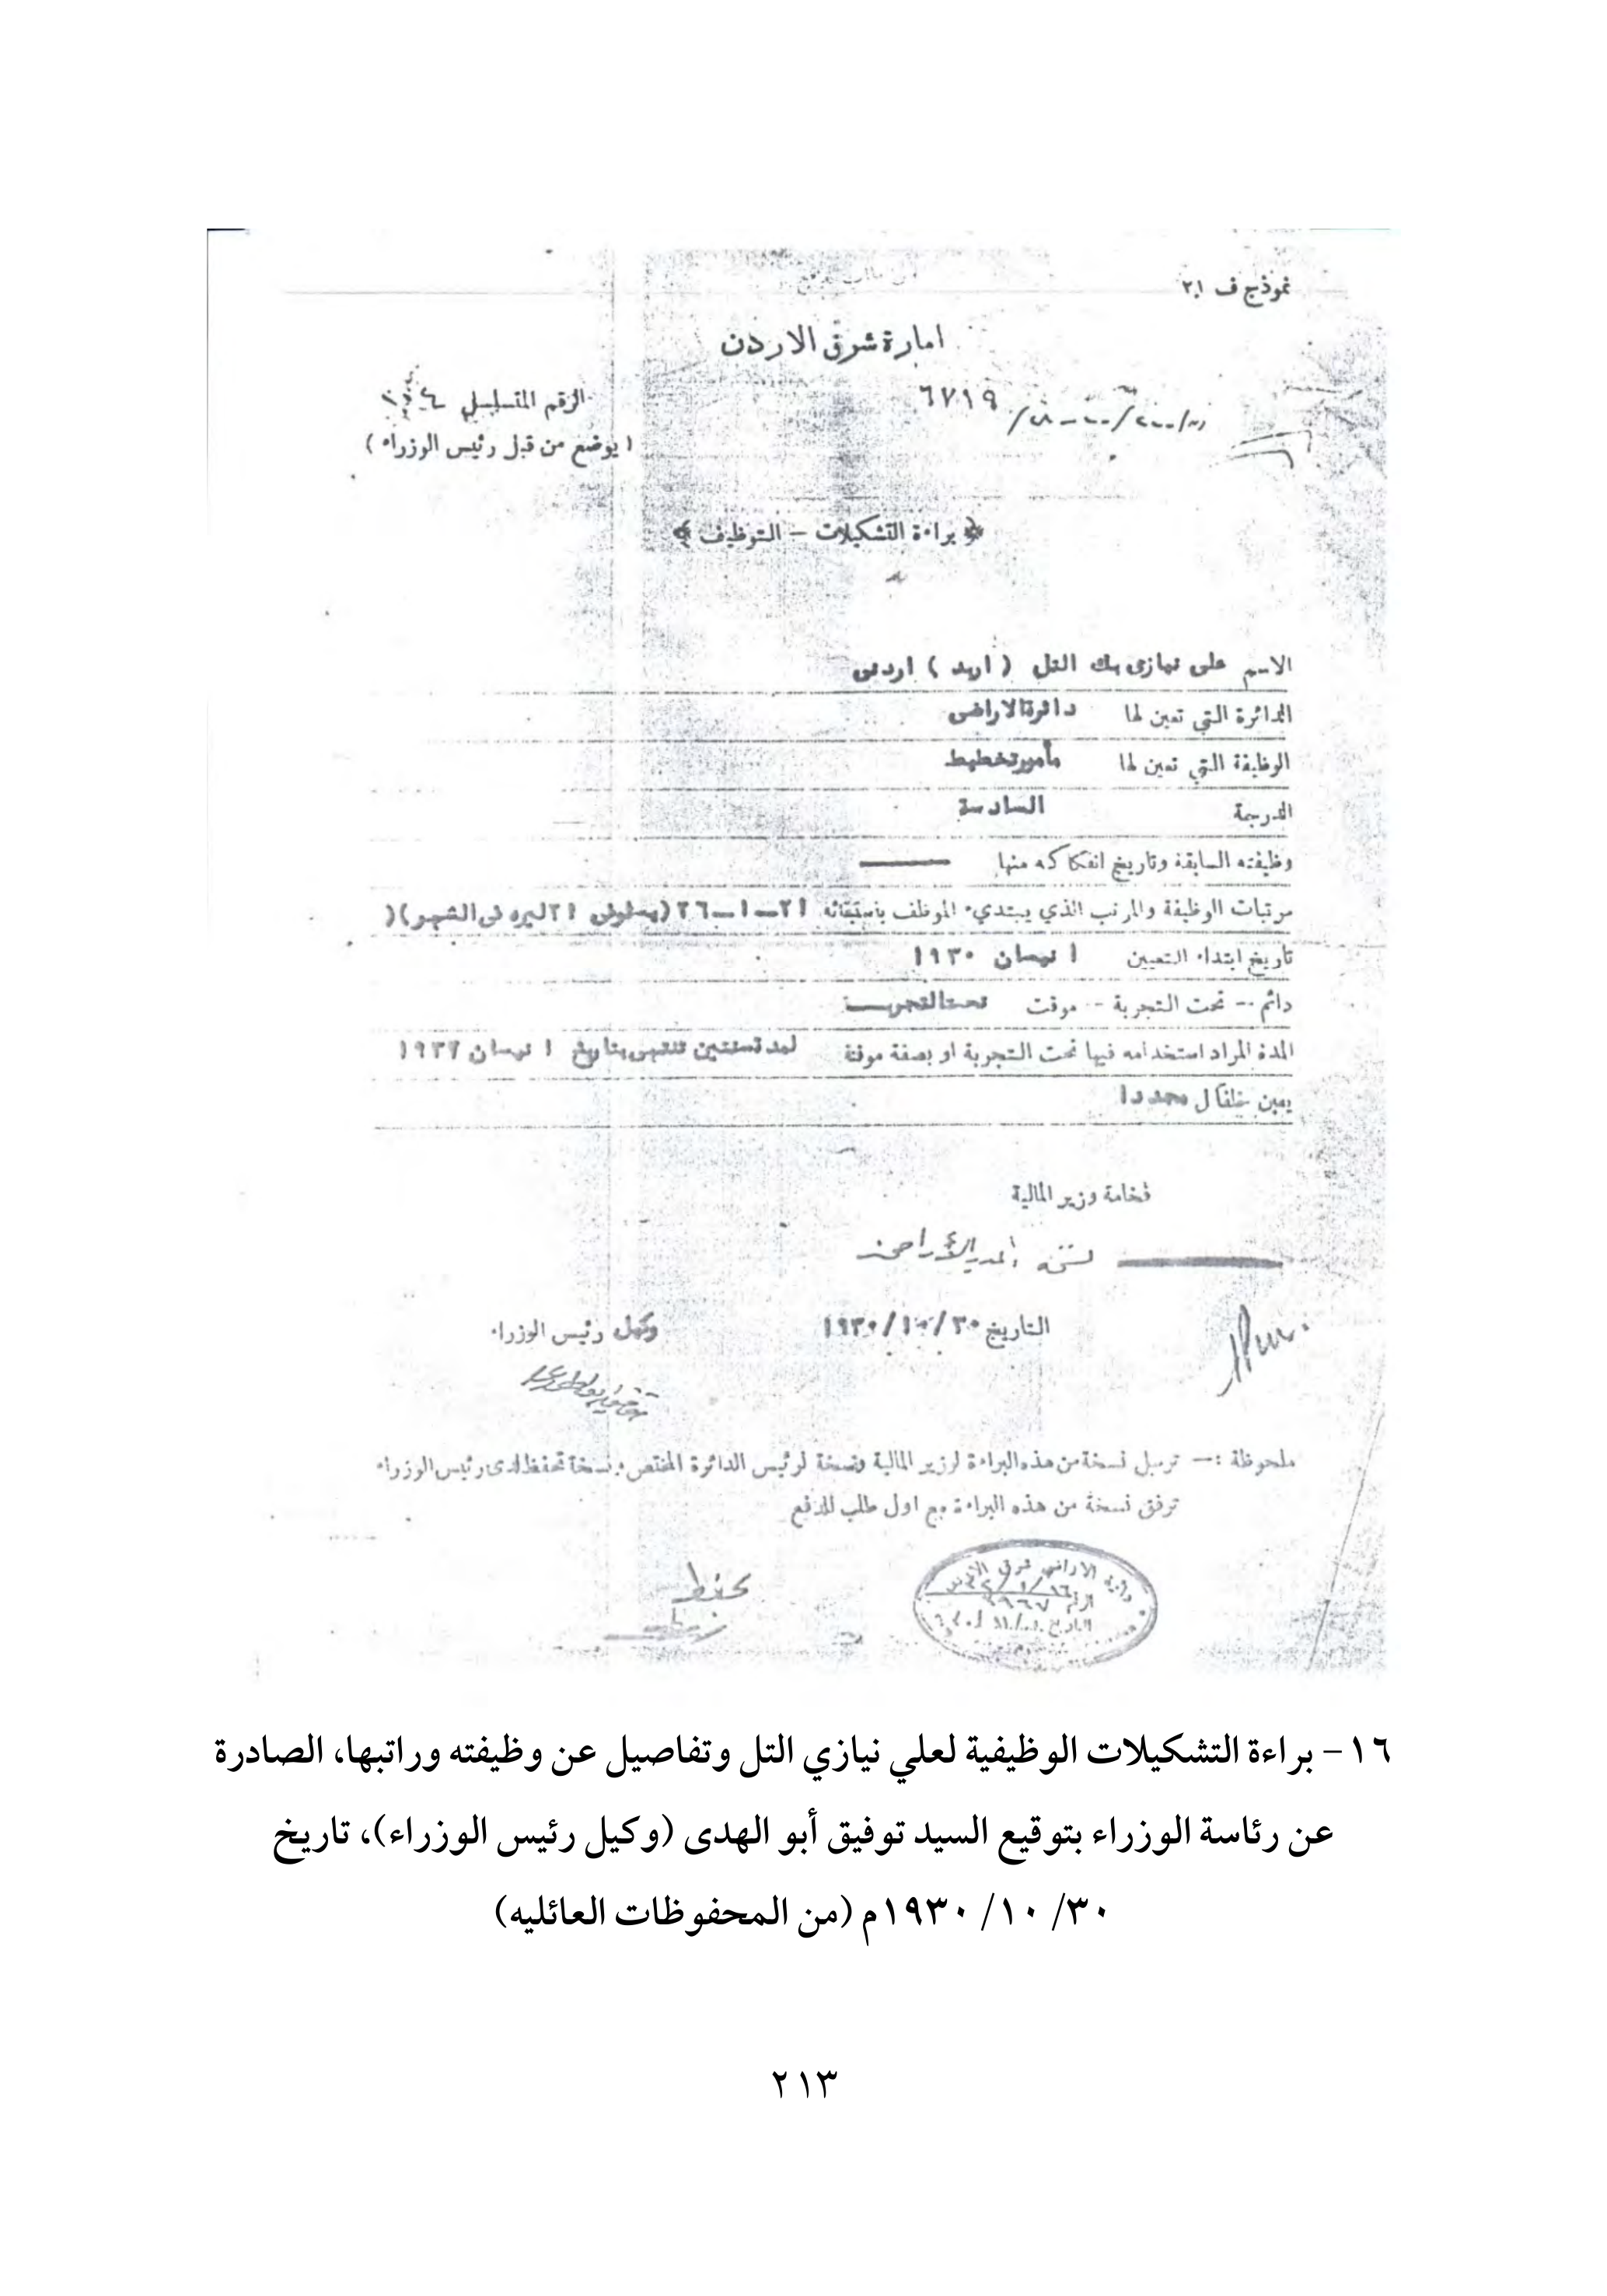 نموذج ف ٢٠١
امارة شرق الاردن
٦٧١٩
الرقم المتسلسل
( يوضع من قبل رئيس الوزراء )
﴿ براءة التشكيلات – التوظيف ﴾
الاسم على نيازى بك التل ( اربد ) اردنى
الدائرة التي تعين لها دائرة الاراضى
الوظيفة التي تعين لها مأمور تخطيط
الدرجة السادسة
وظيفته السابقة وتاريخ انفكاكه منها
مرتبات الوظيفة والمرتب الذي يبتدىء الموظف باستيفائه ٢١–١–٢٦ ( ٢١ ليره فى الشهر )
تاريخ ابتداء التعيين ١ نيسان ١٩٣٠
دائم – تحت التجربة – موقت تحت التجربــة
المدة المراد استخدامه فيها تحت التجربة او بصفة موقتة لمدة سنتين تنتهى بتاريخ ١ نيسان ١٩٣٢
يعين خلفا ل مجددا
فخامة وزير المالية
نسخة لمدير الأراضي
التاريخ ٣٠/١٠/١٩٣٠
وكيل رئيس الوزراء
ملحوظة :– ترسل نسخة من هذه البراءة لوزير المالية ونسخة لرئيس الدائرة المختص ونسخة تحفظ لدى رئيس الوزراء
ترفق نسخة من هذه البراءة مع اول طلب للدفع
يحفظ
دائرة الاراضي شرق الاردن
الرقم
التاريخ
١٦– براءة التشكيلات الوظيفية لعلي نيازي التل وتفاصيل عن وظيفته وراتبها، الصادرة
عن رئاسة الوزراء بتوقيع السيد توفيق أبو الهدى (وكيل رئيس الوزراء)، تاريخ
٣٠/ ١٠/ ١٩٣٠م (من المحفوظات العائليه)
٢١٣